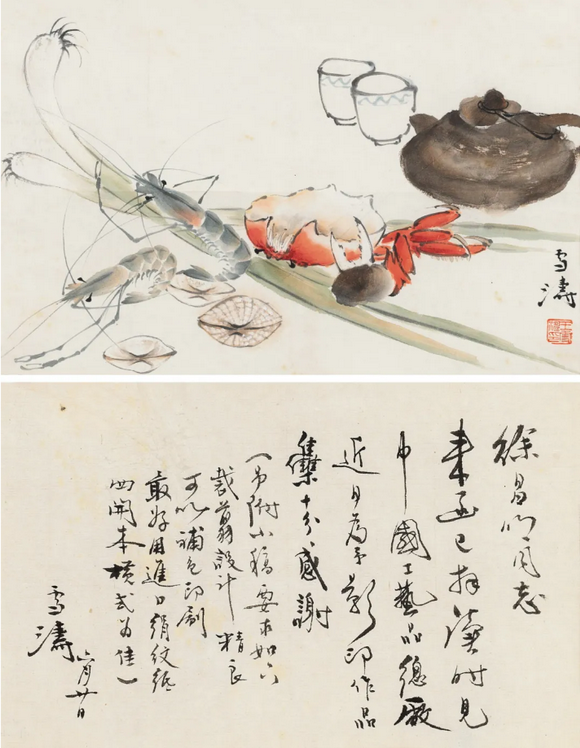 雪濤
徐昌明同志
来函已拜讀时見
中國工藝品總廠
近日為予影印作品
集十分感謝
(另附小稿要求如下
裁剪設计精良
可以補色印刷
最好用進口絹紋纸
四開本横式为佳)
雪濤
六月廿日